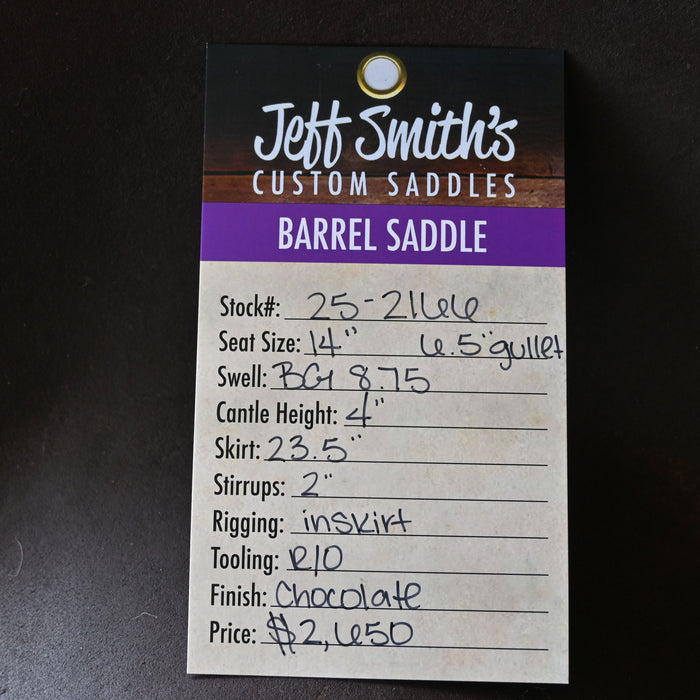 Jeff Smith's
CUSTOM SADDLES
BARREL SADDLE
Stock#: 25-2166
Seat Size: 14" 6.5" gullet
Swell: BG 8.75
Cantle Height: 4"
Skirt: 23.5"
Stirrups: 2"
Rigging: inskirt
Tooling: R/O
Finish: Chocolate
Price: $2,650